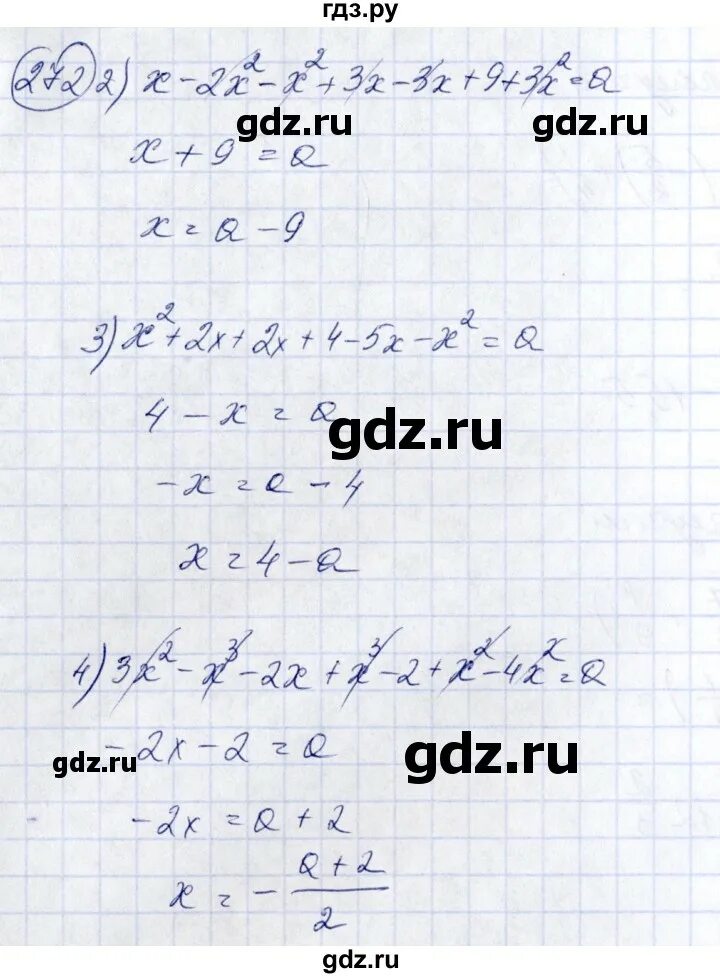 гдз.ру
272 2) x - 2x² - x² + 3x - 3x + 9 + 3x² = a
gdz.ru gdz.ru
x + 9 = a
x = a - 9
3) x² + 2x + 2x + 4 - 5x - x² = a
4 - x = a
gdz.ru
-x = a - 4
x = 4 - a
4) 3x² - x³ - 2x + x³ - 2 + x² - 4x² = a
-2x - 2 = a
gdz.ru gdz.ru
-2x = a + 2
x = - (a + 2)/2
gdz.ru